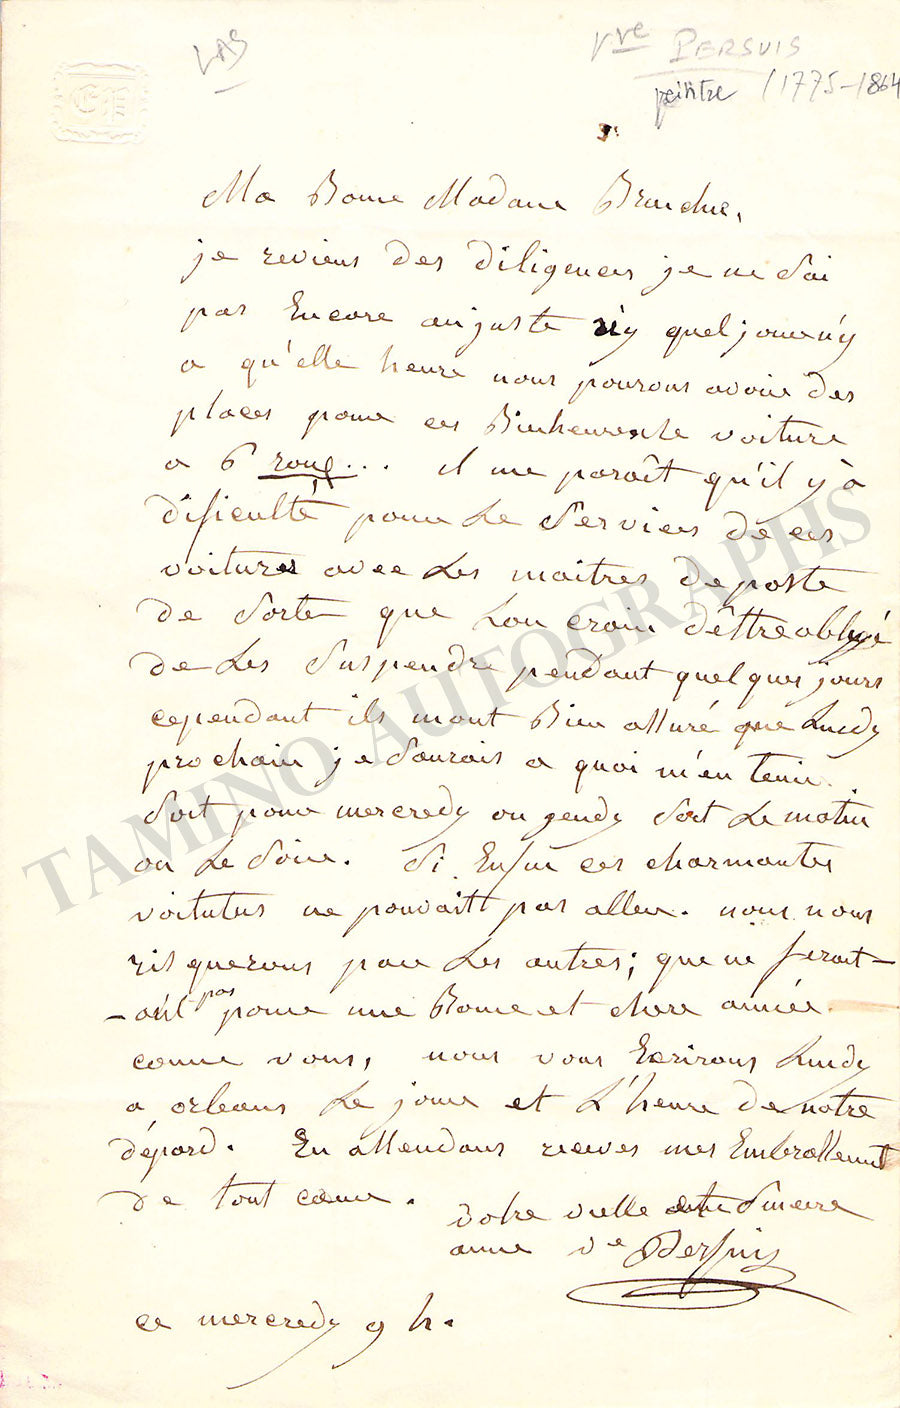 LAS
Vve PERSUIS
peintre (1775-1864
EP
Ma Bonne Madame
je reviens des diligences je ne Sai
pas Encore aujuste n'y quel jour n'y
a qu'elle heure nous pourons avoir des
places pour ces Binheureuse voiture
a 6 roux... il me paroît qu'il y à
dificulté pour Le Services de ces
voitures avec Les maitres de poste
de Sorte que Lon croin d'êttre obligé
de Les Suspendre pendant quelques jours
cependant ils mont Bien assuré que Lundy
prochain je Saurais a quoi m'en tenir.
Soit pour mercredy ou jeudy Soit Le matin
ou Le Soir. Si Enfin ces charmantes
voitutus ne pouvaitt pas aller. nous nous
risquerons par Les autres; que ne feroit-
-on pas pour une Bonne et chere amie
comme vous, nous vous Ecrirons Lundy
a orleans Le jour et L'heure de notre
dépard. En attendans recevez mes Embrassement
de tout coeur.
votre vielle Sincere
amie ve Persuis
ce mercredy 9 h.
TAMINO AUTOGRAPHS